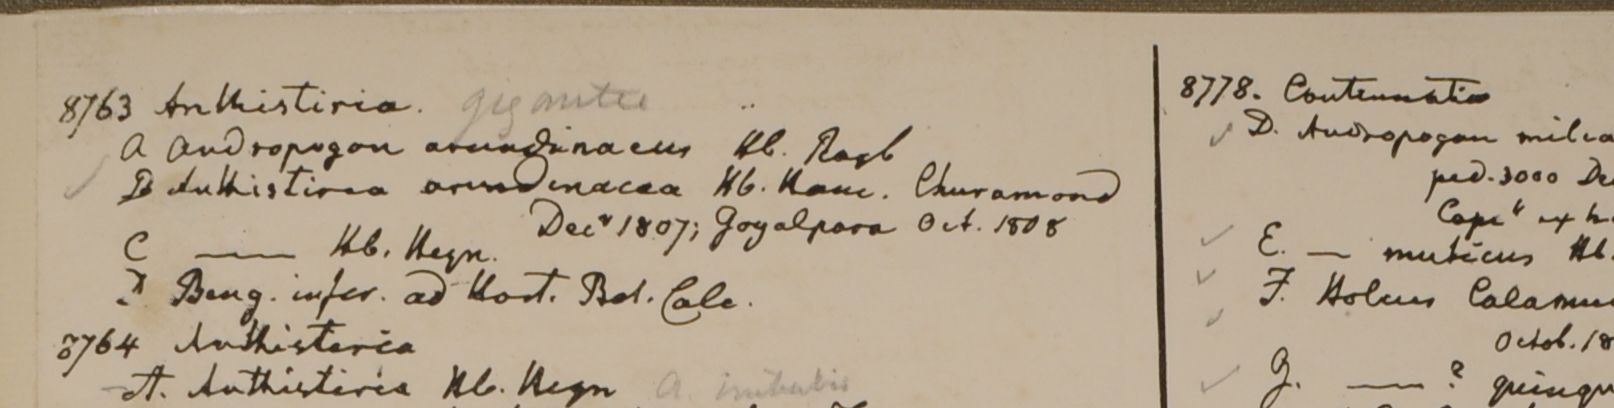 8763 Anthistiria. gigantea
A Andropogon arundinaceus Hb. Roxb
B Anthistiria arundinacea Hb. Ham. Churamond
Decr 1807; Goyalpara Oct. 1808
C —— Hb. Heyn.
D Beng. infer. ad Hort. Bot. Calc.
8764 Anthistiria
A. Anthistiria Hb. Heyn A.
8778.
D. Andropogon milia
ped. 3000 De
E. — muticus Hb.
F. Holcus Calamu
Octob. 18
G. —— ? quinqu